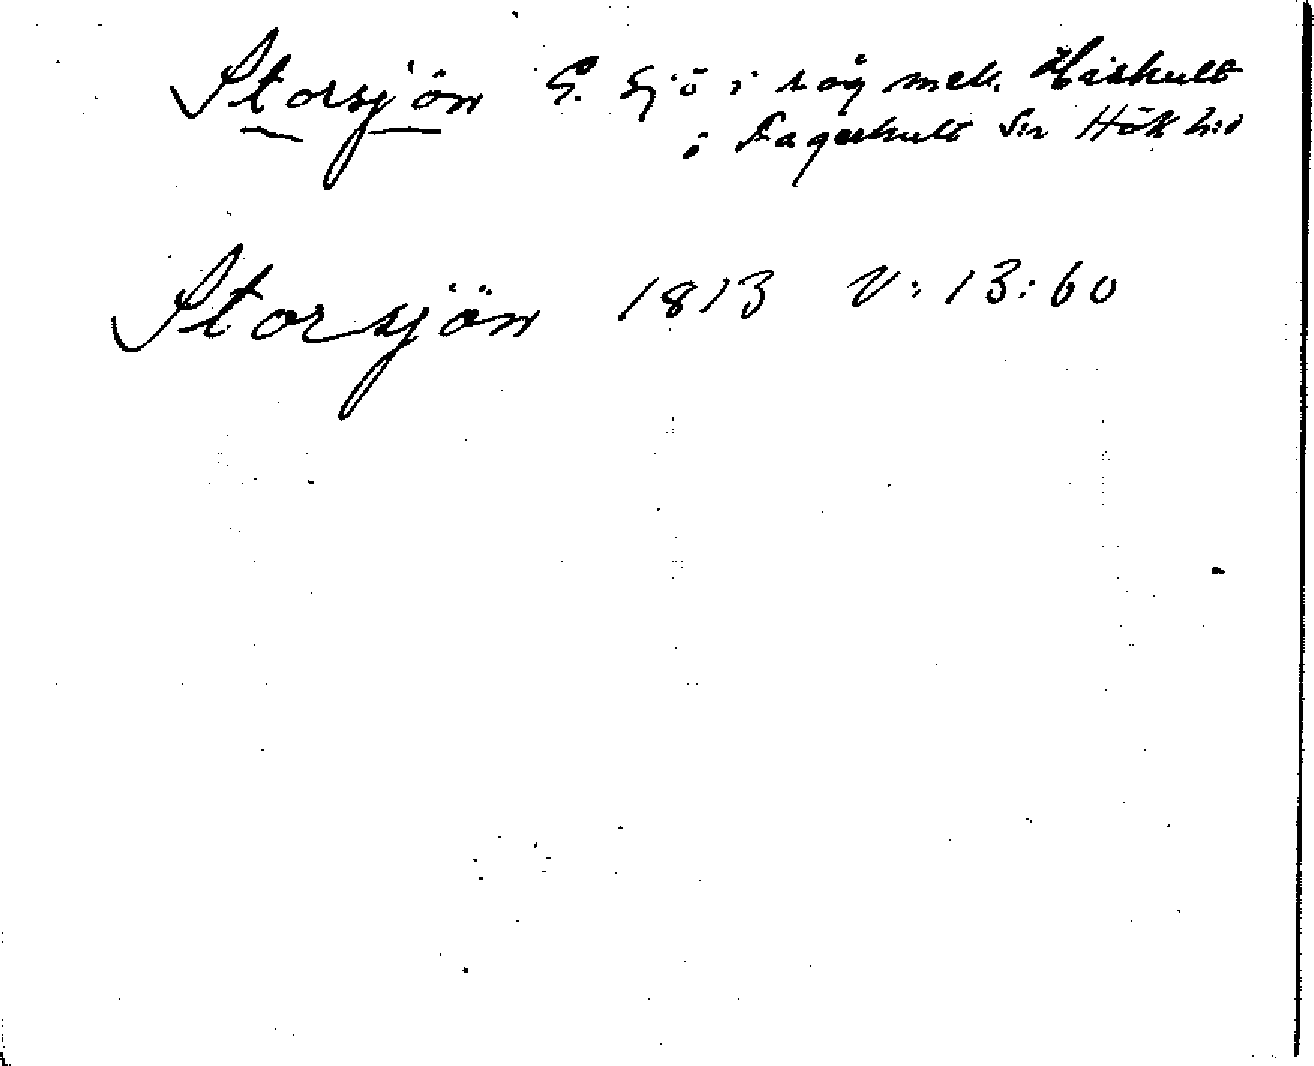 Storsjön S. Sjö i råg mek. Häskult
i Fagerhult Sn Hök h:d
Storsjön 1813 V: 13: 60